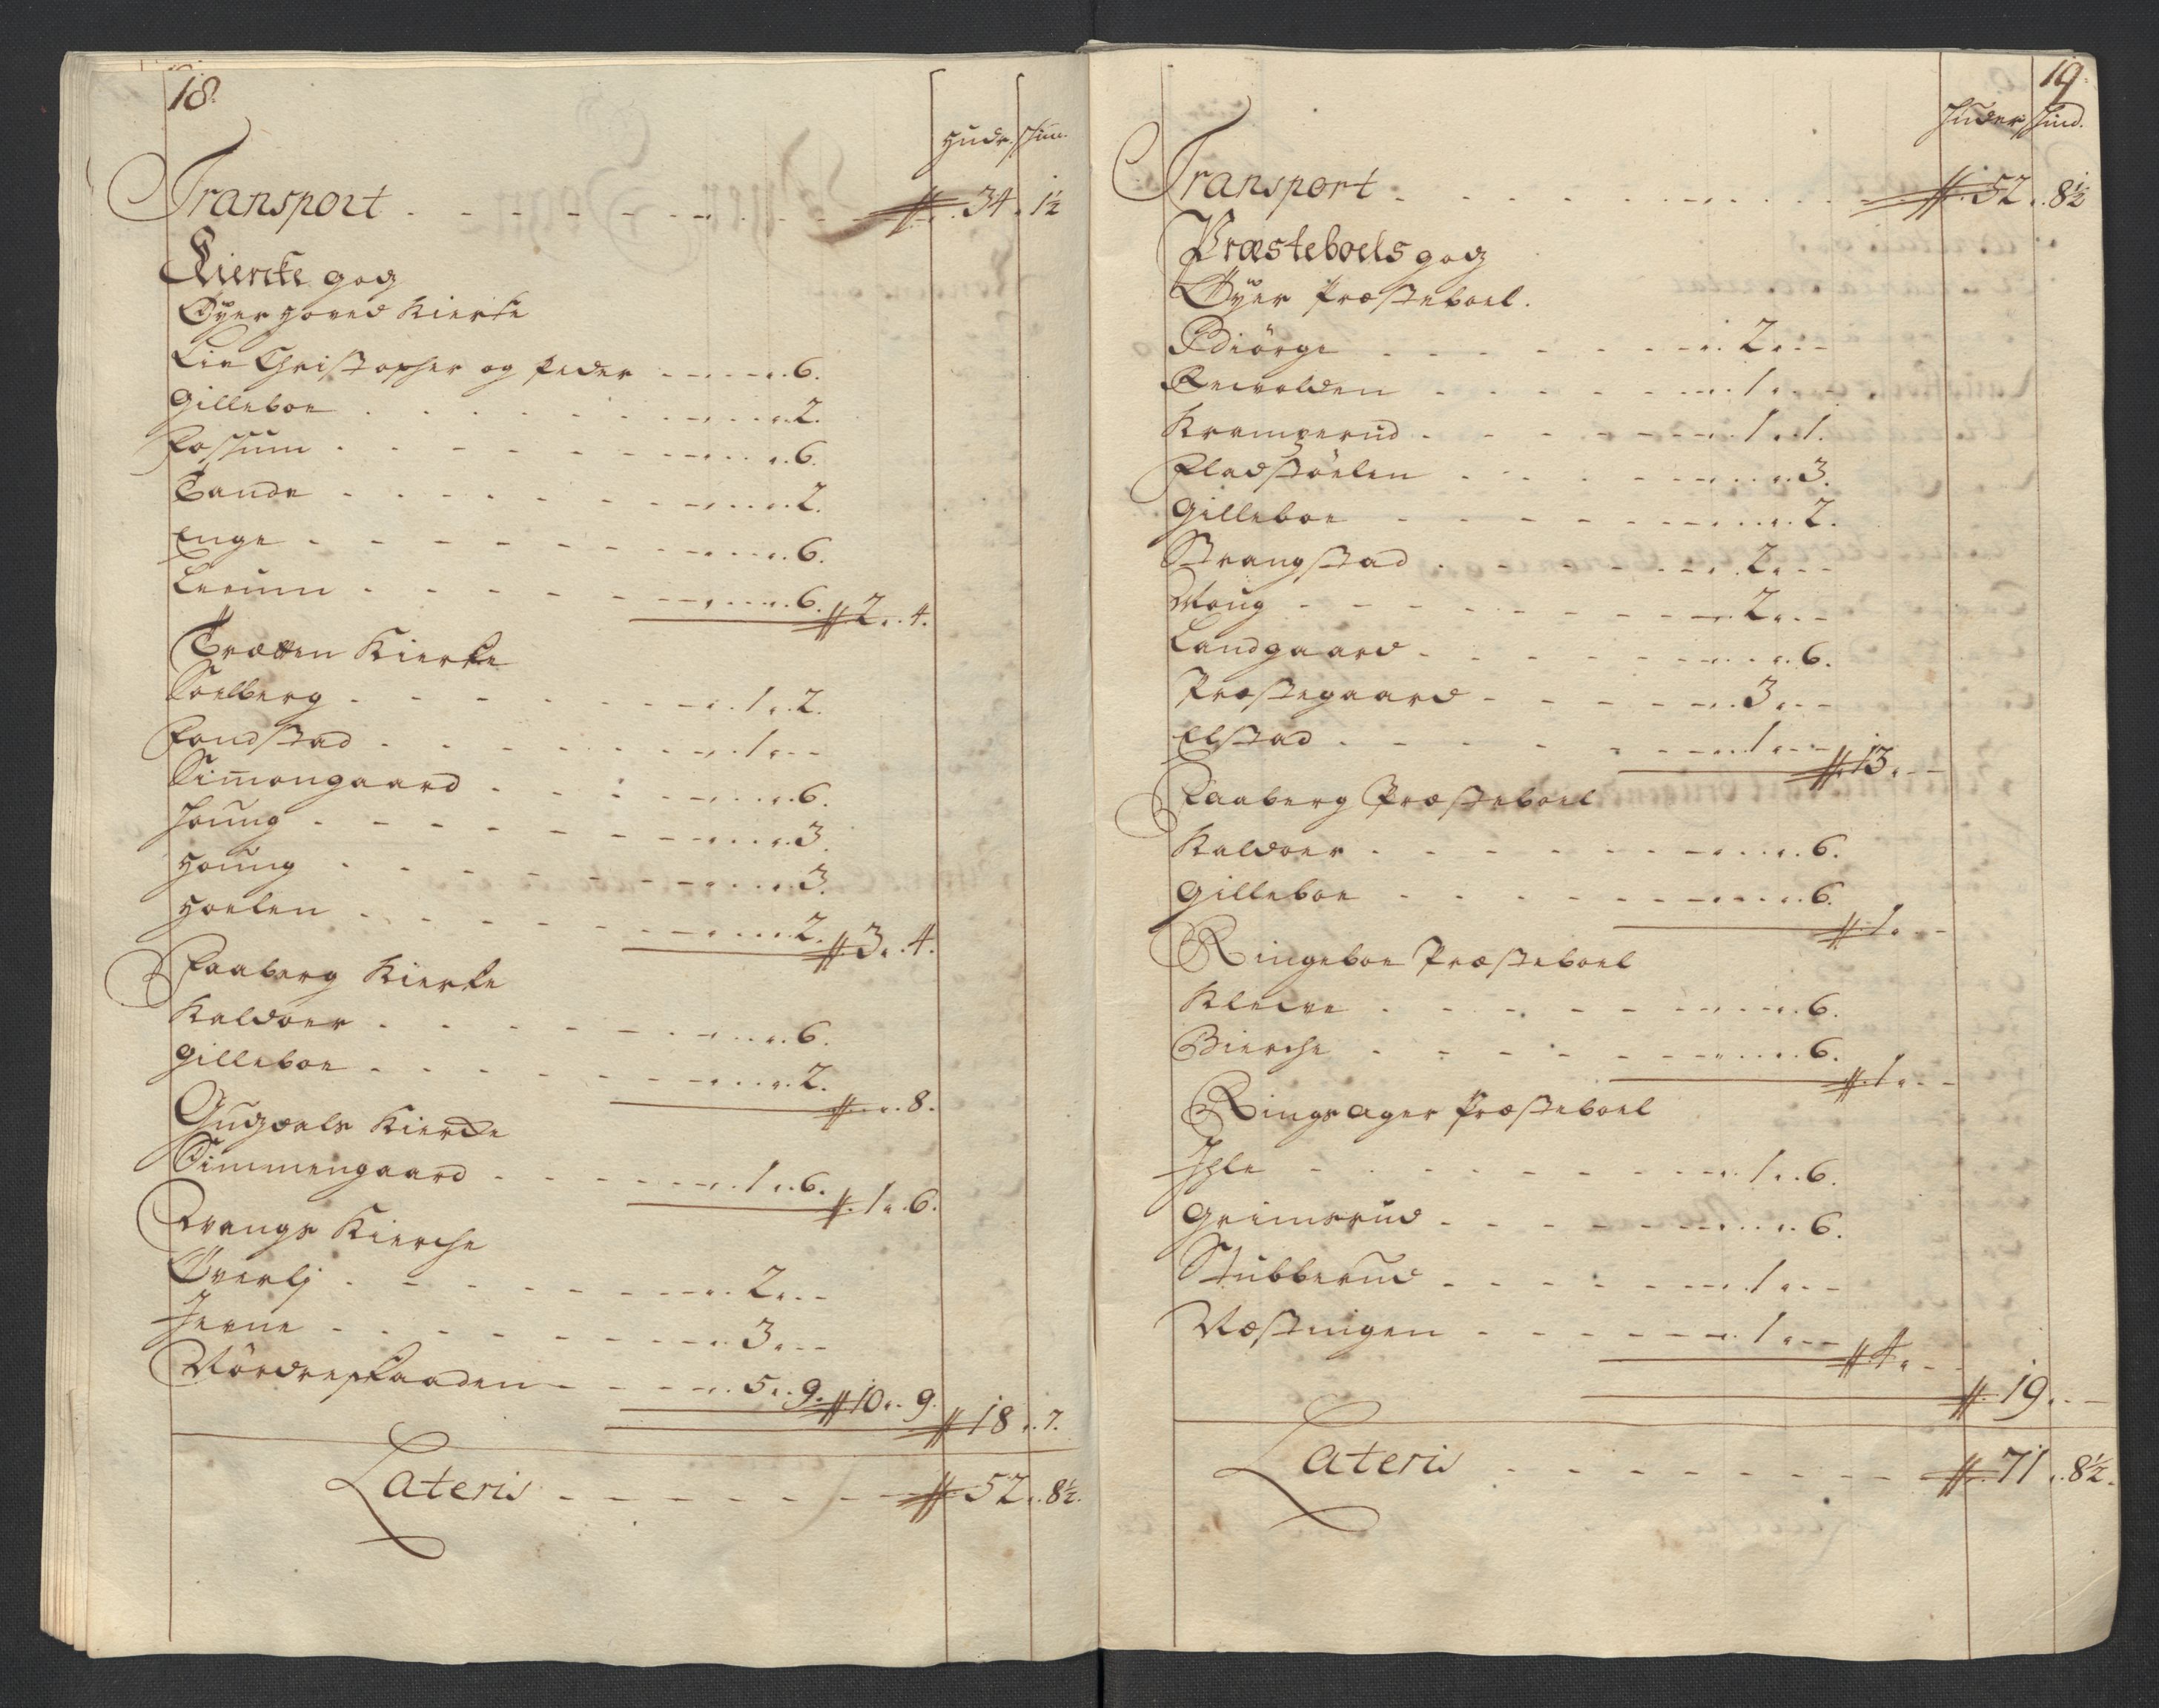 18.
Hude. Skin.
Transport . - - - - - - - # 34 . 1½
Kiercke godz
Øyer Hoved Kierke
Lie Christopher og Peder - - - - 6.
Gilleboe . . . . . - - - 2.
Fossum . - - - - - - - 6.
Tande . . . . - - - - 2.
Enge . - - - - - - - 6.
Leeum . - - - - - - 6. # 2 . 4.
Trætten Kierke
Soelberg . - - - - - - 1 . 2.
Fondstad . . - - - - - 1 . - -
Simongaard . . - - - - 6.
Houng . - - - - - - - 3.
Houng . - - - - - - - 3.
Hoelen . . - - - - - 2. # 3 . 4.
Faaberg Kierke
Kaldoer . - - - - - - 6.
Gilleboe . - - - - - - 2.
# . . 8.
Gudzdals Kierke
Simmengaard - - - - - - 1 . 6.
# . 1 . 6.
Vangs Kierche
Øverlj . - - - - - - 2 . - -
Jevne - - - - - - - - 3 . - -
Nördre Skaaden - - - - - 5 . 9. # 10 . 9.
# 18 . 7.
Lateris - - - - - - - # 52 . 8½.
19.
Huder Skind.
Transport . - - - - - - - # 52 . 8½
Præsteboels godz
Øyer Præsteboel.
Rdiörge . - - - - - - - 2 . - -
Reivolden . - - - - - - 1 . - -
Kramperud . - - - - - - 1 . 1.
Fladstöelen . - - - - - 3.
Gilleboe - - - - - - - - 2.
Strangstad . - - - - - - 2 . - -
Moug - - - - - - - - 2 . - -
Landgaard . - - - - - - 6.
Præstegaard - - - - - - 3 . - -
Elstad . - - - - - - - 1 . - -
# 13 . - -
Faaberg Præsteboel
Kaldoer . - - - - - - - 6.
Gilleboe - - - - - - - - 6.
# 1 . - -
Ringeboe Præsteboel
Kleive . - - - - - - - 6.
Bierche - - - - - - - - 6.
# . 1 . - -
Ringsager Præsteboel
Ihle - - - - - - - - 1 . 6.
Grimsrud . - - - - - - 6.
Stubberud . - - - - - - 1 . - -
Næstingen - - - - - - 1 . - -
# 4 . - -
# . 19 . - -
Lateris - - - - - - - - # . 71 . 8½.